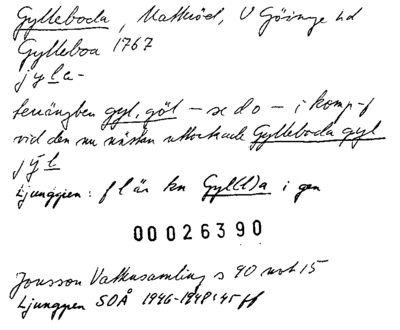 Gylleboda, Matteröd, V Göinge hd
Gylleboa 1767
jyla-
terrängben gyl, göl – se d o – i komp-f
vid den nu nästan uttorkade Gylleboda gyl
jyl
Ljunggren: f l är kn Gyl(l)a i gen
00026390
Jonsson Vattensamling s 90 not 15
Ljunggren SOÅ 1946-1948:45 ff